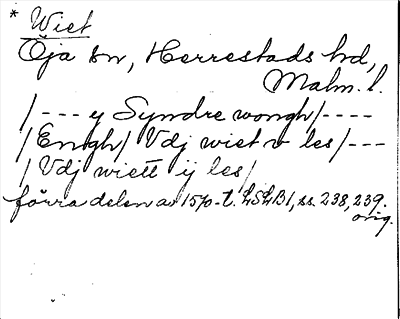 * Wiet
Öja sn, Herrestads hd,
Malm. l.
/--- y Syndre wongh/----
/Engh/ Vdj wiet v les/---
/Vdj wiett ij les/
förra delen av 1570-t. LSLB1, ss. 238, 239.
orig.